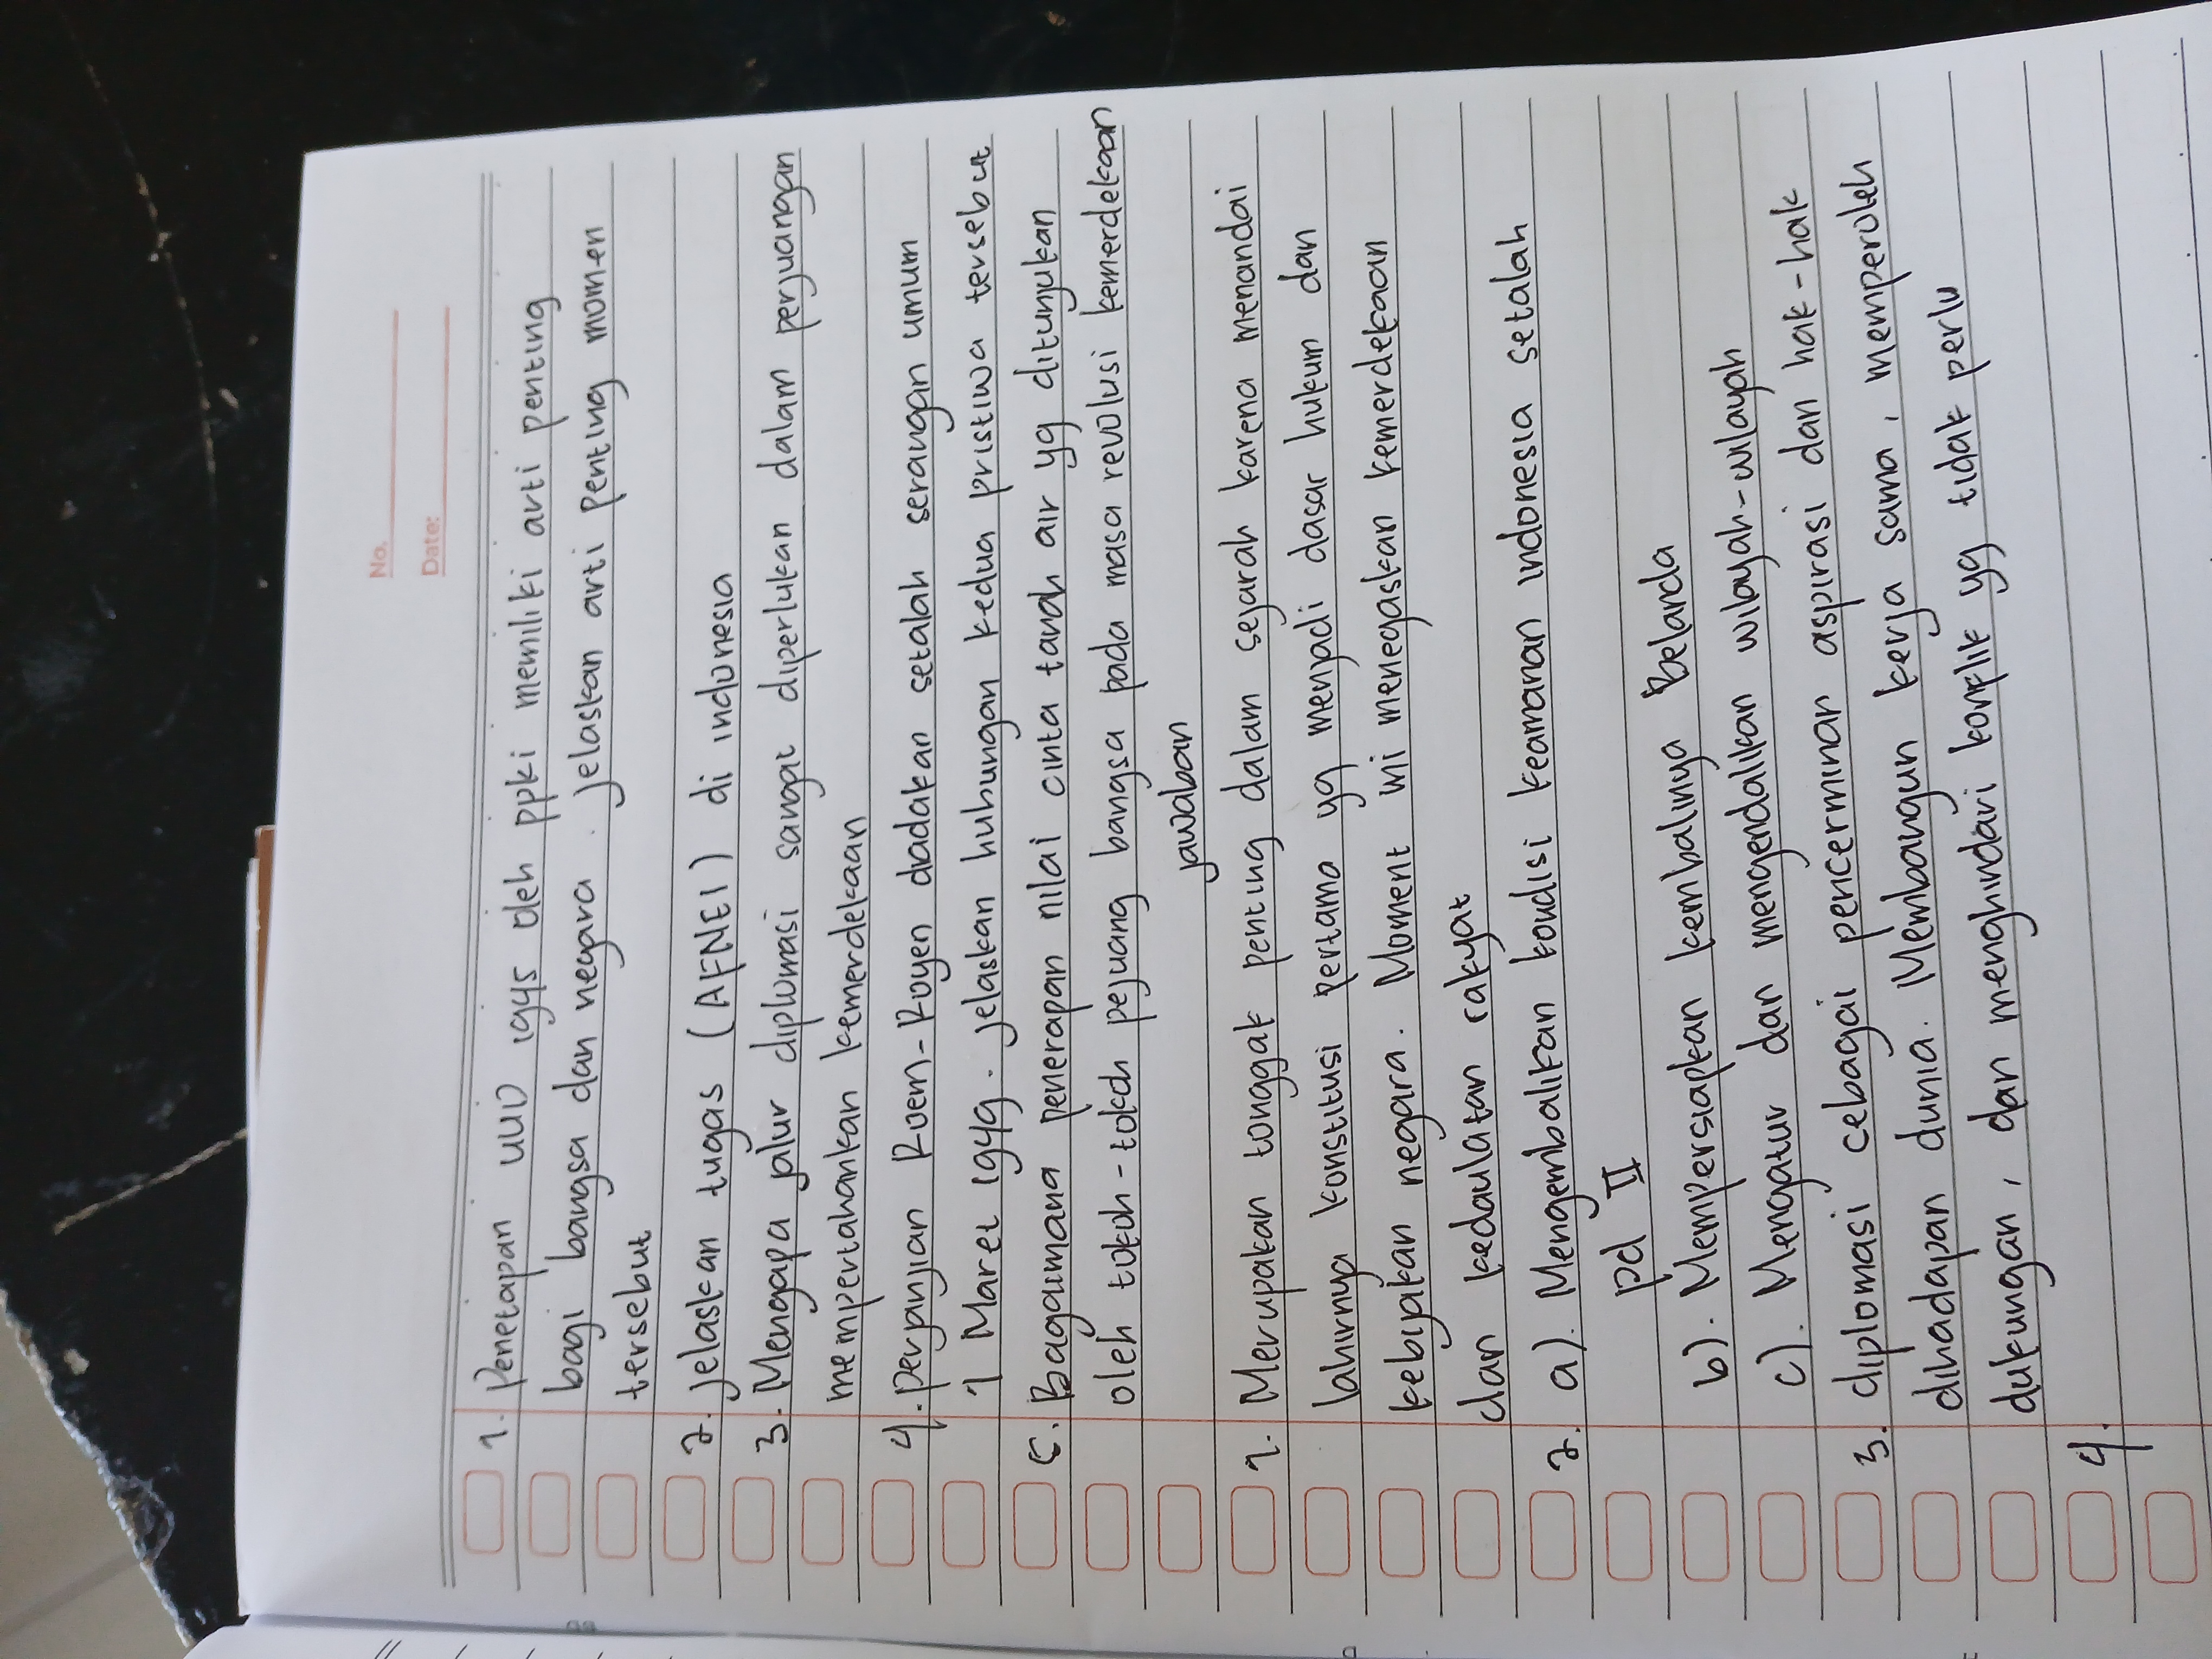 No.
Date:
1. Penetapan UUD 1945 oleh ppki memiliki arti penting
bagi bangsa dan negara. jelaskan arti penting momen
tersebut
2. jelaskan tugas (AFNEI) di indonesia
3. Mengapa jalur diplomasi sangat diperlukan dalam perjuangan
mempertahankan kemerdekaan
4. perjanjian Roem-Royen diadakan setalah serangan umum
1 Maret 1949. jelaskan hubungan kedua pristiwa tersebut
5. Bagaimana penerapan nilai cinta tanah air yg ditunjukan
oleh tokoh-tokoh pejuang bangsa pada masa revolusi kemerdekaan
jawaban
1. Merupakan tonggak penting dalam sejarah karena menandai
lahirnya konstitusi pertama yg menjadi dasar hukum dan
kebijakan negara. Moment ini menegaskan kemerdekaan
dan kedaulatan rakyat
2. a). Mengembalikan kondisi keamanan indonesia setalah
pd II
b). Mempersiapkan kembalinya Belanda
c). Mengatur dan mengendalikan wilayah-wilayah
3. diplomasi cebagai pencerminan aspirasi dan hak-hak
dihadapan dunia. Membangun kerja sama, memperoleh
dukungan, dan menghindari konflik yg tidak perlu
4.